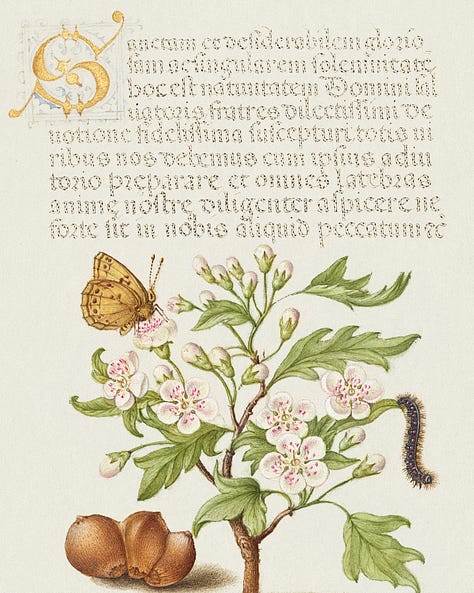 Sanctam et desiderabilem glorio
sam ac singularem solemnitate
hoc est natiuitatem Domini sal
uatoris fratres dilectissimi de
uotione fidelissima suscepturi totis ui
ribus nos debemus cum ipsius adiu
torio preparare et omnes latebras
anime nostre diligenter aspicere ne
forte sit in nobis aliquid peccatum &c